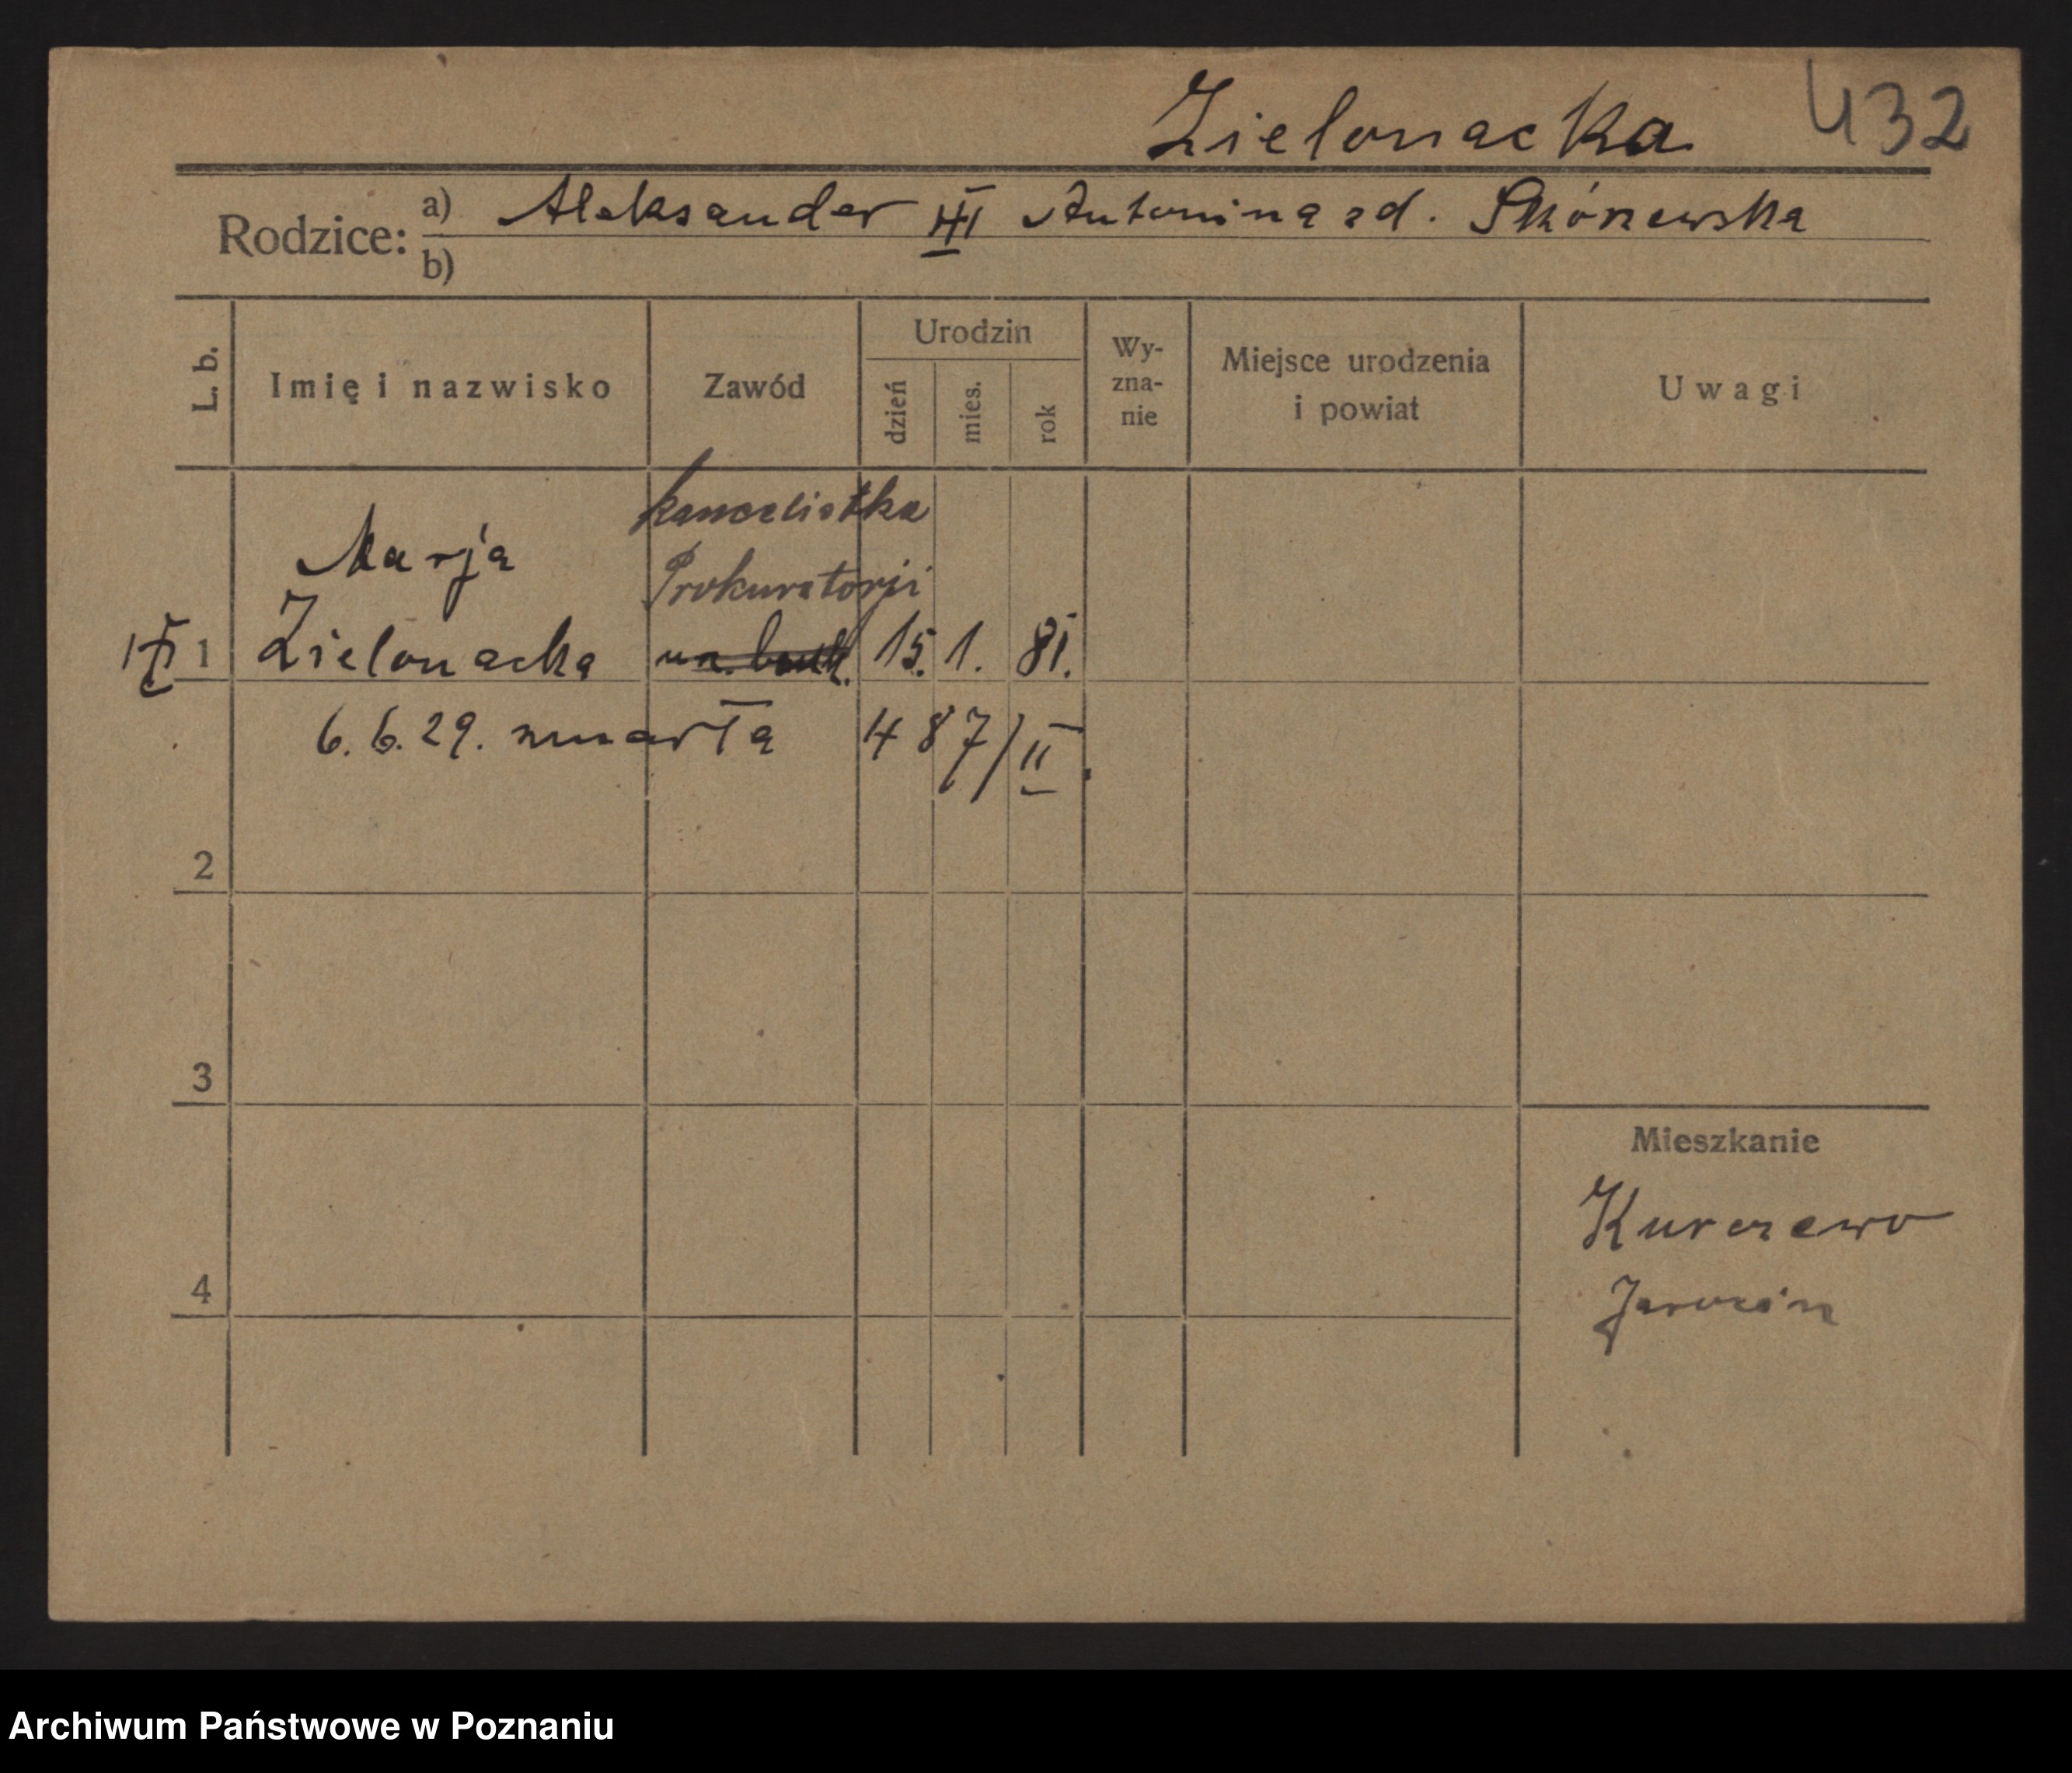 Zielonacka 432
Rodzice: a) Aleksander Antonina zd. Skórzewska
b)
L. b. Imię i nazwisko Zawód Urodzin dzień mies. rok Wy-zna-nie Miejsce urodzenia i powiat Uwagi
kancelistka
Marja Prokuratorji
1 Zielonacka 15. 1. 81.
6.6.29. zmarła 487/II.
2
3
Mieszkanie
Kurczewo
4 Jarocin
Archiwum Państwowe w Poznaniu